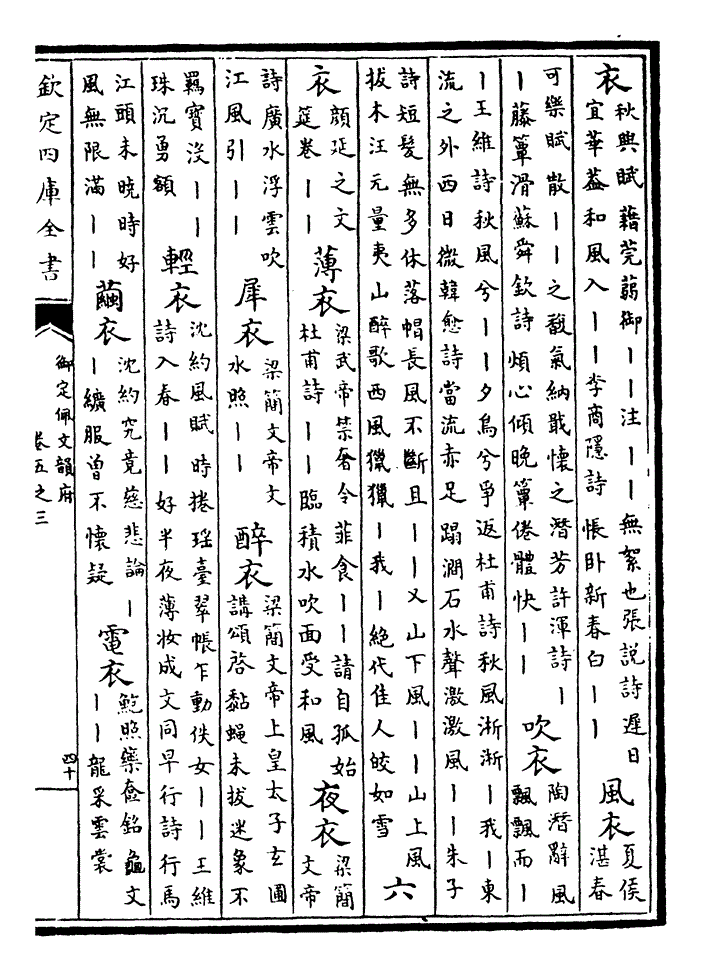 衣
秋興賦藉莞蒻御||注||無絮也張説詩遲日
宜華葢和風入||李商隱詩悵卧新春白||
風衣
夏侯
湛春
可樂賦散||之馥氣納戢懷之潛芳許渾詩|
|藤簟滑蘇舜欽詩煩心傾晚簟倦體快||
吹衣
陶潛辭風
飄飄而|
|王維詩秋風兮||夕烏兮爭返杜甫詩秋風淅淅|我|東
流之外西日微韓愈詩當流赤足蹋澗石水聲激激風||朱子
詩短髮無多休落帽長風不斷且||又山下風||山上風
拔木汪元量夷山醉歌西風獵獵|我|絶代佳人皎如雪
六
衣
顔延之文
筵卷||
薄衣
梁武帝禁奢令菲食||請自孤始
杜甫詩||臨積水吹面受和風
夜衣
梁簡
文帝
詩廣水浮雲吹
江風引||
犀衣
梁簡文帝文
水照||
醉衣
梁簡文帝上皇太子玄圃
講頌啓黏蠅未拔迷象不
羈寳没||
珠沉勇額
輕衣
沈約風賦時捲瑤臺翠帳乍動佚女||王維
詩入春||好半夜薄妝成文同早行詩行馬
江頭未曉時好
風無限滿||
繭衣
沈約究竟慈悲論|
|纊服曾不懷疑
電衣
鮑照藥奩銘龜文
||龍采雲裳
欽定四庫全書
御定佩文韻府
卷五之三
四十